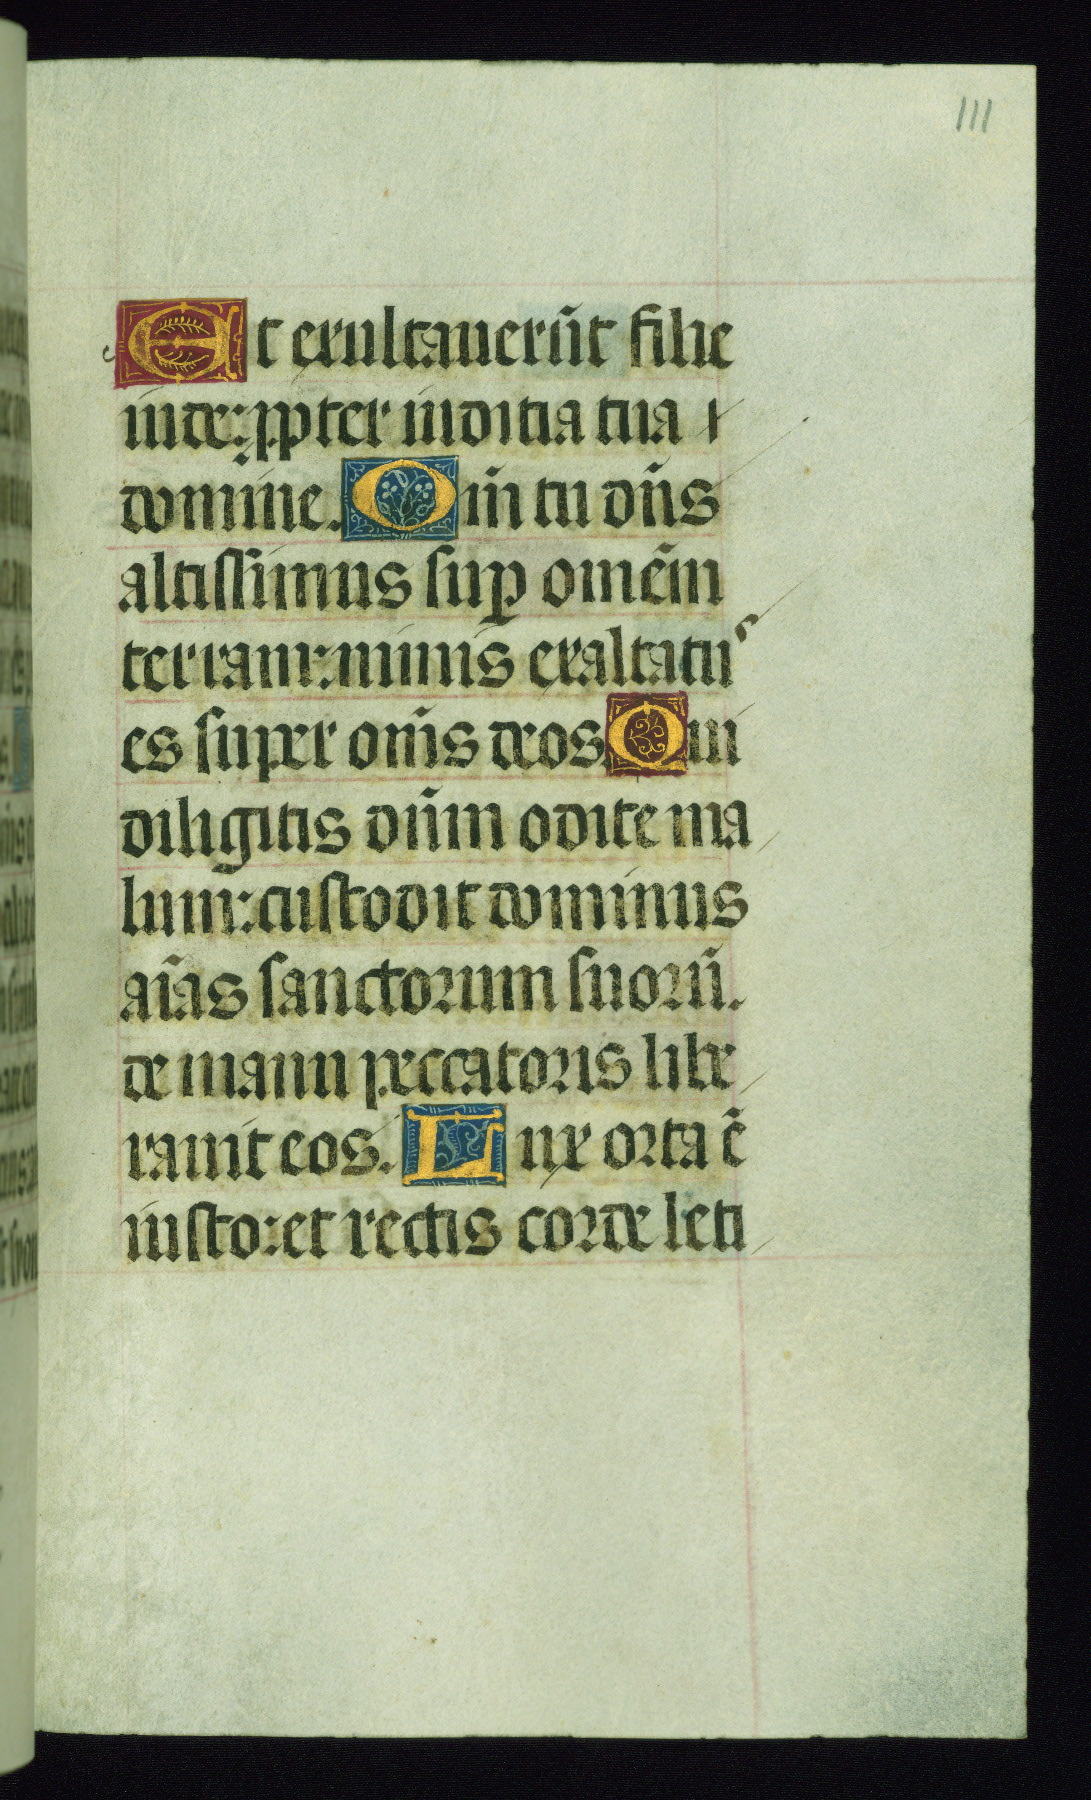 111
Et exultauerūt filie
iude: ꝓpter iuditia tua
domine. Qm̄ tu dn̄s
altissimus suꝑ omēm
terram: nimis exaltatus
es super om̄s deos. Qui
diligitis dn̄m odite ma
lum: custodit dominus
aīas sanctorum suorū.
de manu peccatoris libe
rauit eos. Lux orta ē
iusto: et rectis corde leti